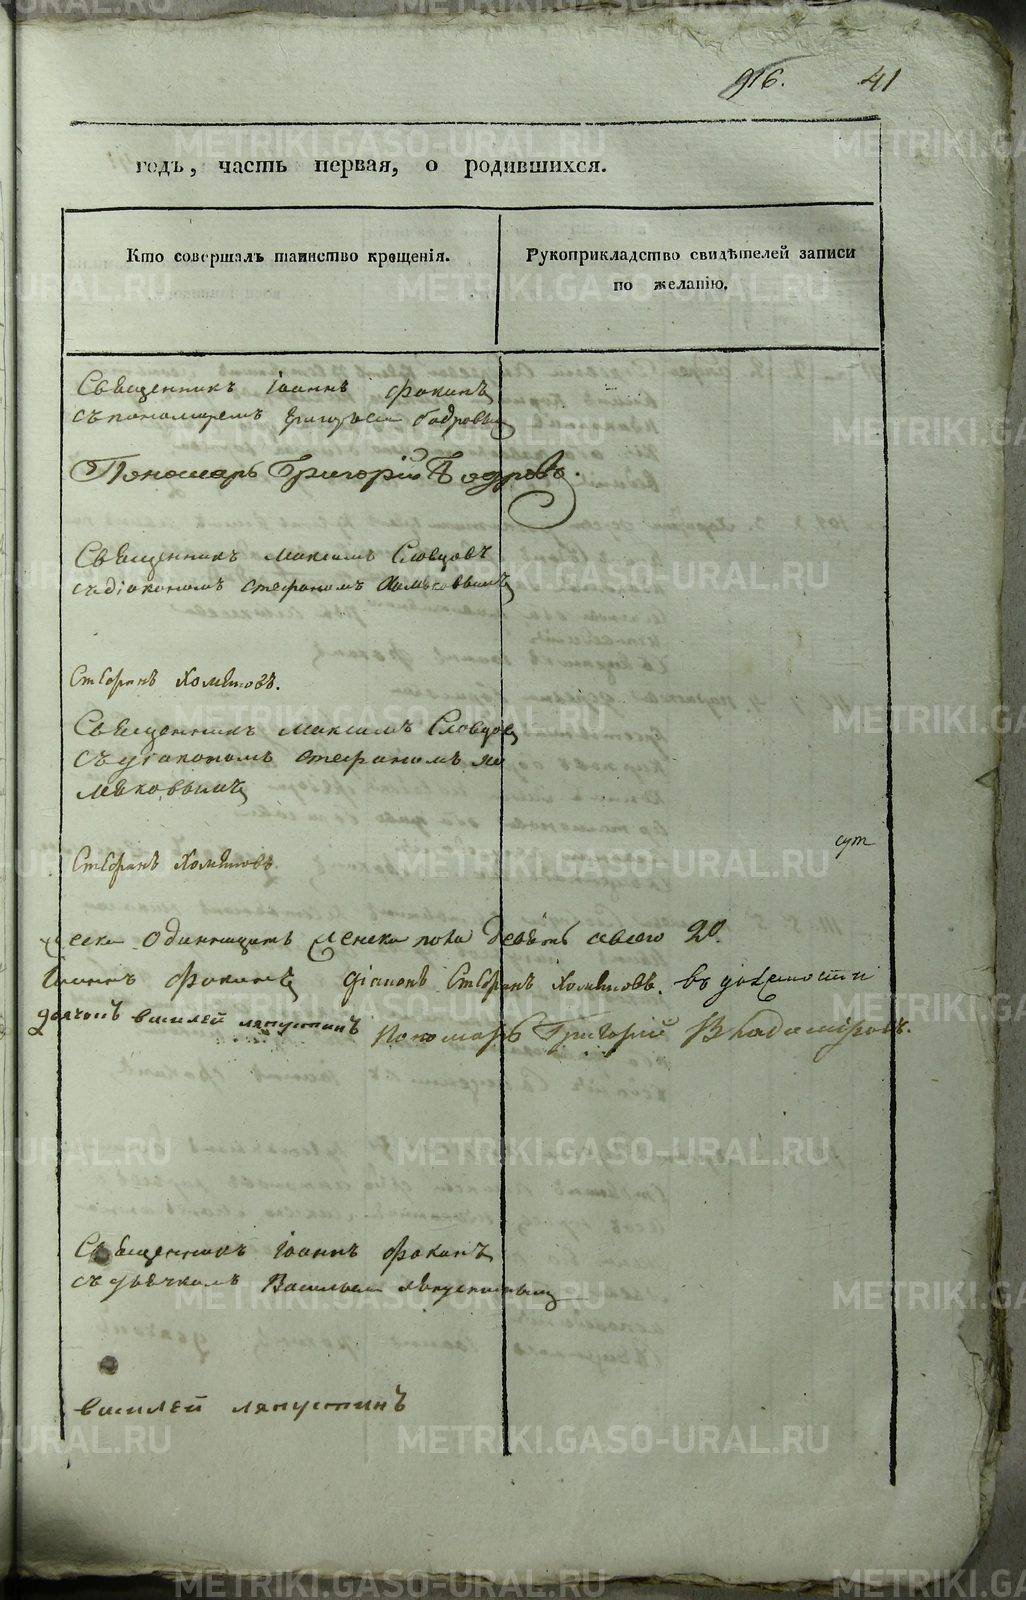 916. 41
годъ, часть первая, о родившихся.
Кто совершалъ таинство крещенія.
Рукоприкладство свидѣтелей записи
по желанію.
Священникъ Іоаннъ Фокинъ
съ пономаремъ Григорьем Бодровым
Пономарь Григорій Бодровъ.
Священникъ Максимъ Словцовъ
съ діакономъ Стефаномъ Хомяковымъ
Стефанъ Хомяковъ.
Священникъ Максимъ Словцов
съ діакономъ Стефаномъ Хо
мяковымъ
Стефанъ Хомяковъ
одиннадцать женска пола девять всего 20.
Іоаннъ Фокинъ діаконъ Стефанъ Хомяковъ. въ должности
дьячокъ василей ляпустинъ Пономарь Григорій Владиміровъ.
Священникъ Іоаннъ Фокинъ
съ дьячкомъ Васильем Ляпустиным
василей ляпустинъ
METRIKI.GASO-URAL.RU